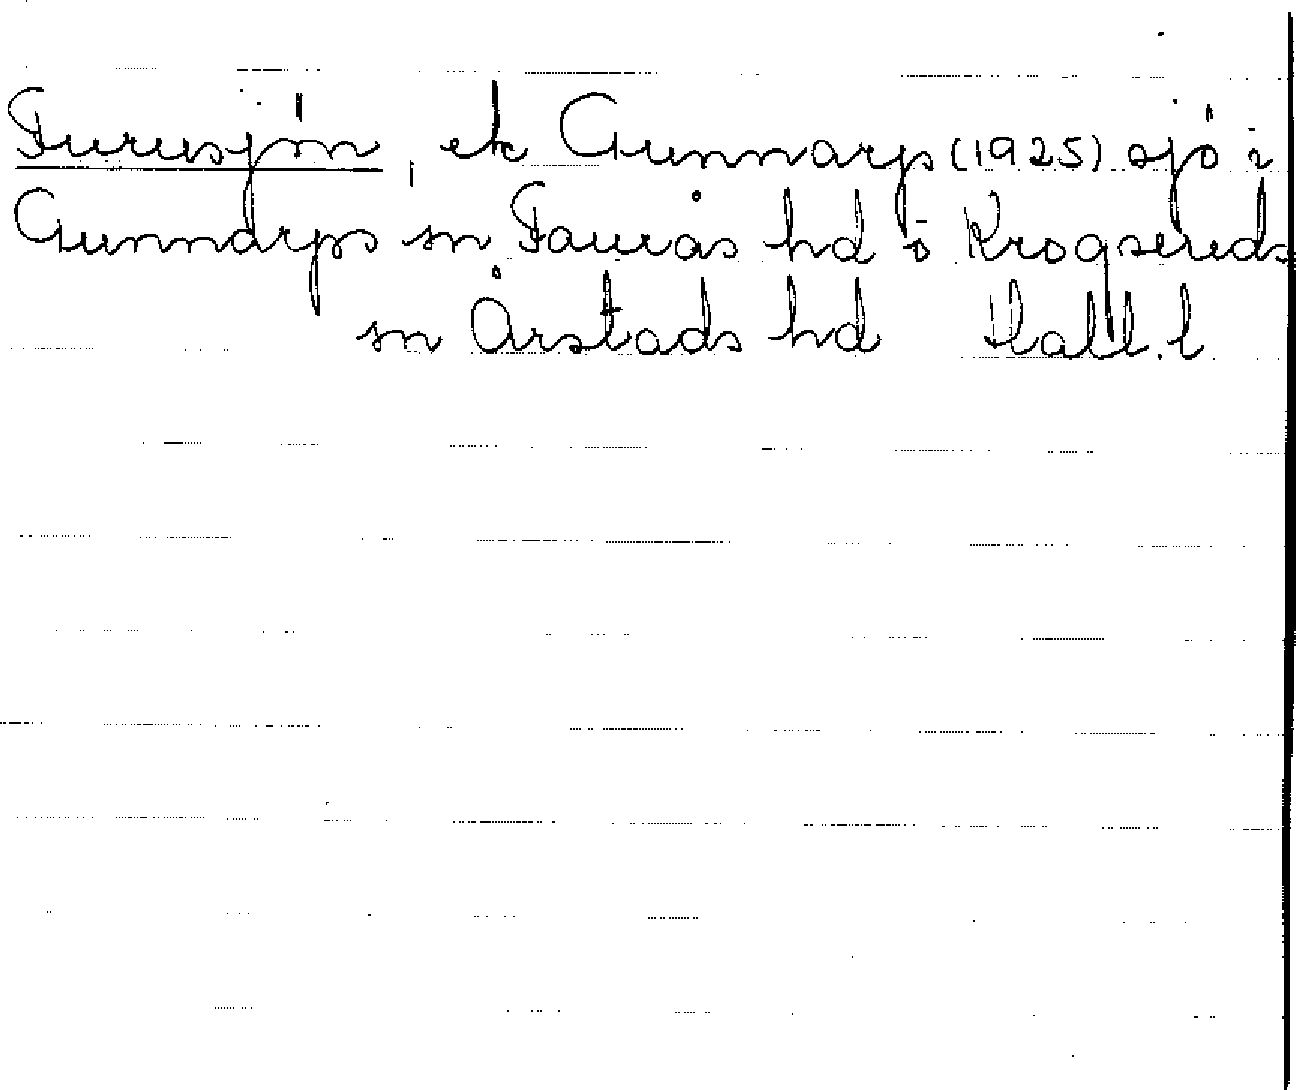 Furusjön, ek Gunnarp (1925) sjö i
Gunnarps sn Faurås hd o Krogsereds
sn Årstads hd Hall. l